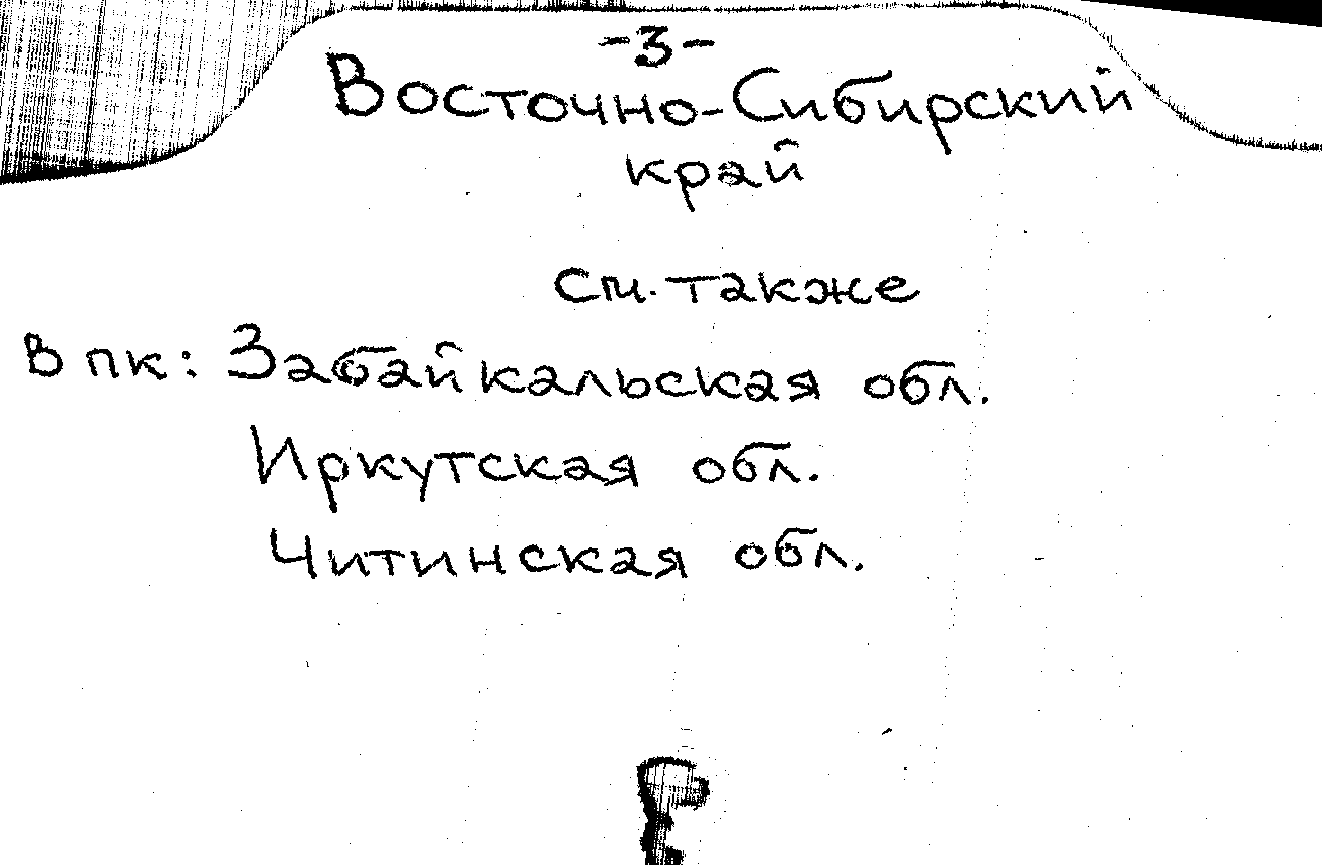 -3-
Восточно-Сибирский
край
См. также
В пк: Забайкальская обл.
Иркутская обл.
Читинская обл.